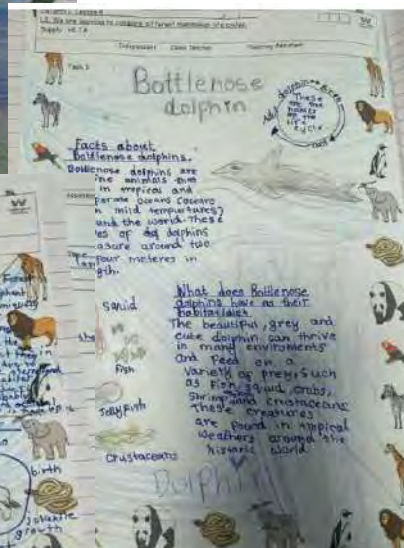 L.O. We are learning to compare different mammalian life cycles.
Supply
Independent Class Teacher Teaching Assistant
Task 2
Bottlenose
dolphin
These
are the
names
of the
life
cycle
Facts about
Bottlenose dolphins.
Bottlenose dolphins are
ine animals that
in tropical and
perate oceans (oceans
h mild tempurtures)
und the world. These
es of dol dolphins
asure around two
four meteres in
gth.
What does Bottlenose
dolphins have as their
habitat/diet
The beautiful, grey and
cute dolphin can thrive
in many enviroments
and feed on a
variety of prey, such
as fish, squid crabs,
Shrimp and crustaceans
These creatures
are found in tropical
weathers around the
historic world.
squid
Fish
Jellyfish
Crustaceans
Dolphin
birth
growth